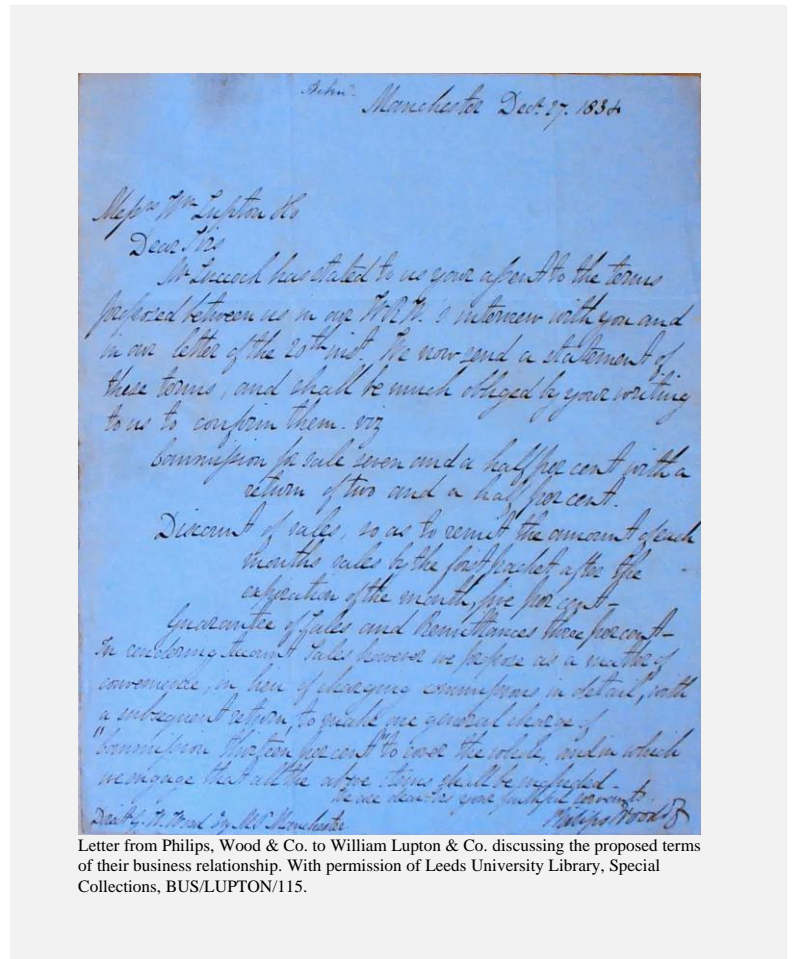 Manchester Dec. 27. 1834
Messrs Wm Lupton & Co
Dear Sirs
Mr Luccock has stated to us your assent to the terms
proposed between us in our W.R.W.'s interview with you and
in our letter of the 20th inst. We now send a statement of
these terms, and shall be much obliged by your writing
to us to confirm them. viz
Commission for sale seven and a half per cent with a
return of two and a half per cent.
Discount of sales, so as to remit the amount of each
months sales by the first packet after the
expiration of the month, five per cent –
Guarantee of Sales and Remittances three per cent –
In rendering Account Sales however we propose as a matter of
convenience, in lieu of charging commissions in detail, with
a subsequent return, to make one general charge of
"Commission thirteen per cent" to cover the whole, and in which
we engage that all the above items shall be included –
We are dear sirs your faithful servants
Direct G. W. Wood Esq M.P. Manchester
Philips Wood &
Letter from Philips, Wood & Co. to William Lupton & Co. discussing the proposed terms
of their business relationship. With permission of Leeds University Library, Special
Collections, BUS/LUPTON/115.